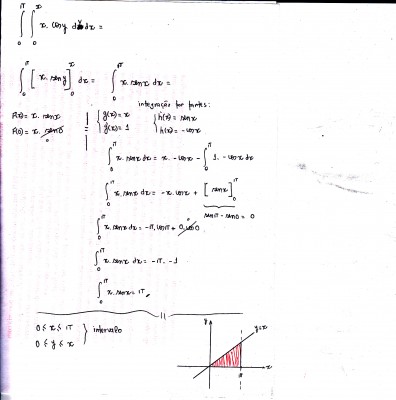 ∫₀^π ∫₀^x x. cosy dy dx =
∫₀^π [x. seny]₀^x dx = ∫₀^π x. senx dx =
integração por partes:
F(x) = x. senx
F(0) = x. sen0
0
g(x) = x
g'(x) = 1
h'(x) = senx
h(x) = -cosx
∫₀^π x. senx dx = x. -cosx - ∫₀^π 1. -cosx dx
∫₀^π x. senx dx = -x. cosx + [senx]₀^π
senπ - sen0 = 0
∫₀^π x. senx dx = -π. cosπ + 0.cos0
0
∫₀^π x. senx dx = -π. -1
∫₀^π x. senx = π
0 ≤ x ≤ π
0 ≤ y ≤ x
} intervalo
y
y=x
x
π